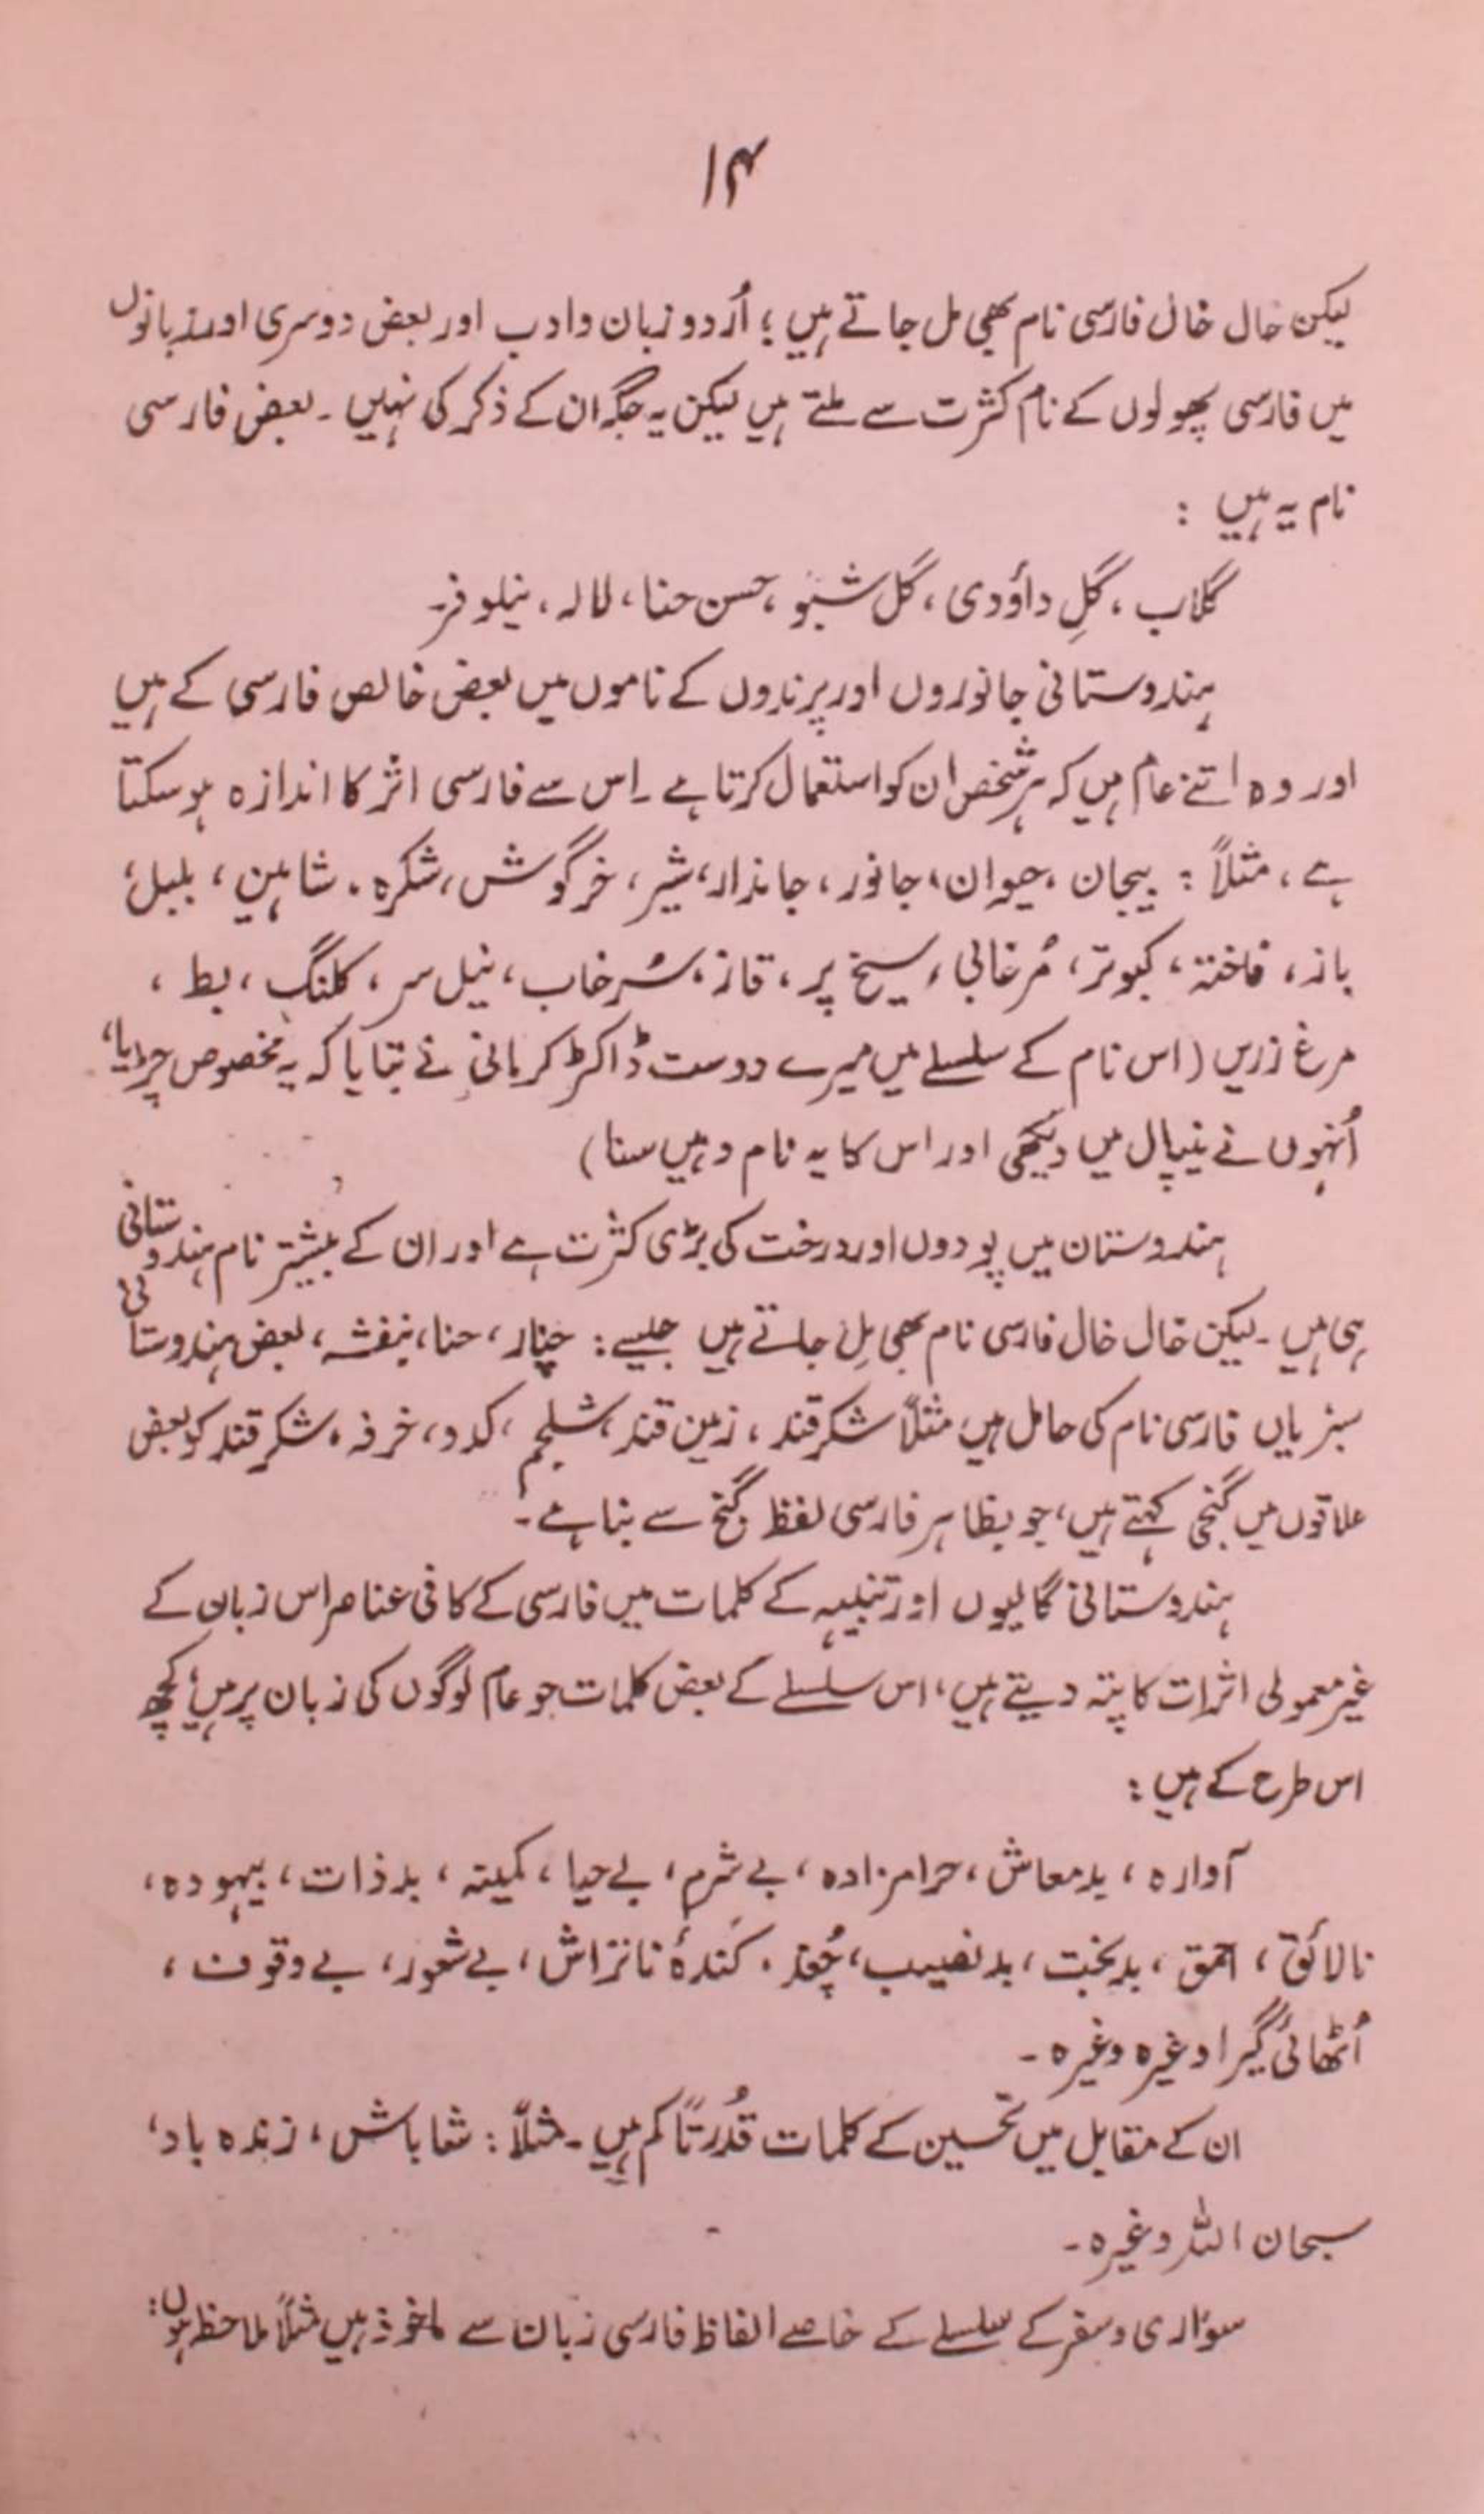 ۱۴
لیکن خال خال فارسی نام بھی مل جاتے ہیں؛ اُردو زبان و ادب اور بعض دوسری اور زبانوں
میں فارسی پھولوں کے نام کثرت سے ملتے ہیں لیکن یہ جگہ ان کے ذکر کی نہیں۔ بعض فارسی
نام یہ ہیں :
گلاب، گلِ داؤدی، گل شبو، حسن حنا، لالہ، نیلوفر۔
ہندوستانی جانوروں اور پرندوں کے ناموں میں بعض خالص فارسی کے ہیں
اور وہ اتنے عام ہیں کہ ہر شخص ان کو استعمال کرتا ہے۔ اس سے فارسی اثر کا اندازہ ہو سکتا
ہے، مثلاً : بیجان، حیوان، جانور، جاندار، شیر، خرگوش، شکرہ، شاہین، بلبل،
باز، فاختہ، کبوتر، مُرغابی، سیخ پر، قاز، سُرخاب، نیل سر، کلنگ، بط،
مرغ زریں (اس نام کے سلسلے میں میرے دوست ڈاکٹر کرمانی نے بتایا کہ یہ مخصوص چڑیا،
اُنہوں نے نیپال میں دیکھی اور اس کا یہ نام وہیں سنا)
ہندوستان میں پودوں اور درخت کی بڑی کثرت ہے اور ان کے بیشتر نام ہندوستانی
ہی ہیں۔ لیکن خال خال فارسی نام بھی مِل جاتے ہیں جیسے : چنار، حنا، بنفشہ، بعض ہندوستانی
سبزیاں فارسی نام کی حامل ہیں مثلاً شکر قند، زمین قند، شلجم، کدو، خرفہ، شکر قند کو بعض
علاقوں میں گنجی کہتے ہیں، جو بظاہر فارسی لفظ گنج سے بنا ہے۔
ہندوستانی گالیوں اور تنبیہہ کے کلمات میں فارسی کے کافی عناصر اس زبان کے
غیر معمولی اثرات کا پتہ دیتے ہیں، اس سلسلے کے بعض کلمات جو عام لوگوں کی زبان پر ہیں، کچھ
اس طرح کے ہیں :
آوارہ، بدمعاش، حرامزادہ، بے شرم، بے حیا، کمینہ، بد ذات، بیہودہ،
نالائق، احمق، بدبخت، بدنصیب، چُغد، کُندۂ ناتراش، بے شعور، بے وقوف،
اُٹھائی گیرا وغیرہ وغیرہ۔
ان کے مقابل میں تحسین کے کلمات قُدرتاً کم ہیں۔ مثلاً : شاباش، زندہ باد،
سبحان اللہ وغیرہ۔
سواری و سفر کے سلسلے کے خاصے الفاظ فارسی زبان سے ماخوذ ہیں مثلاً ملاحظہ ہوں :